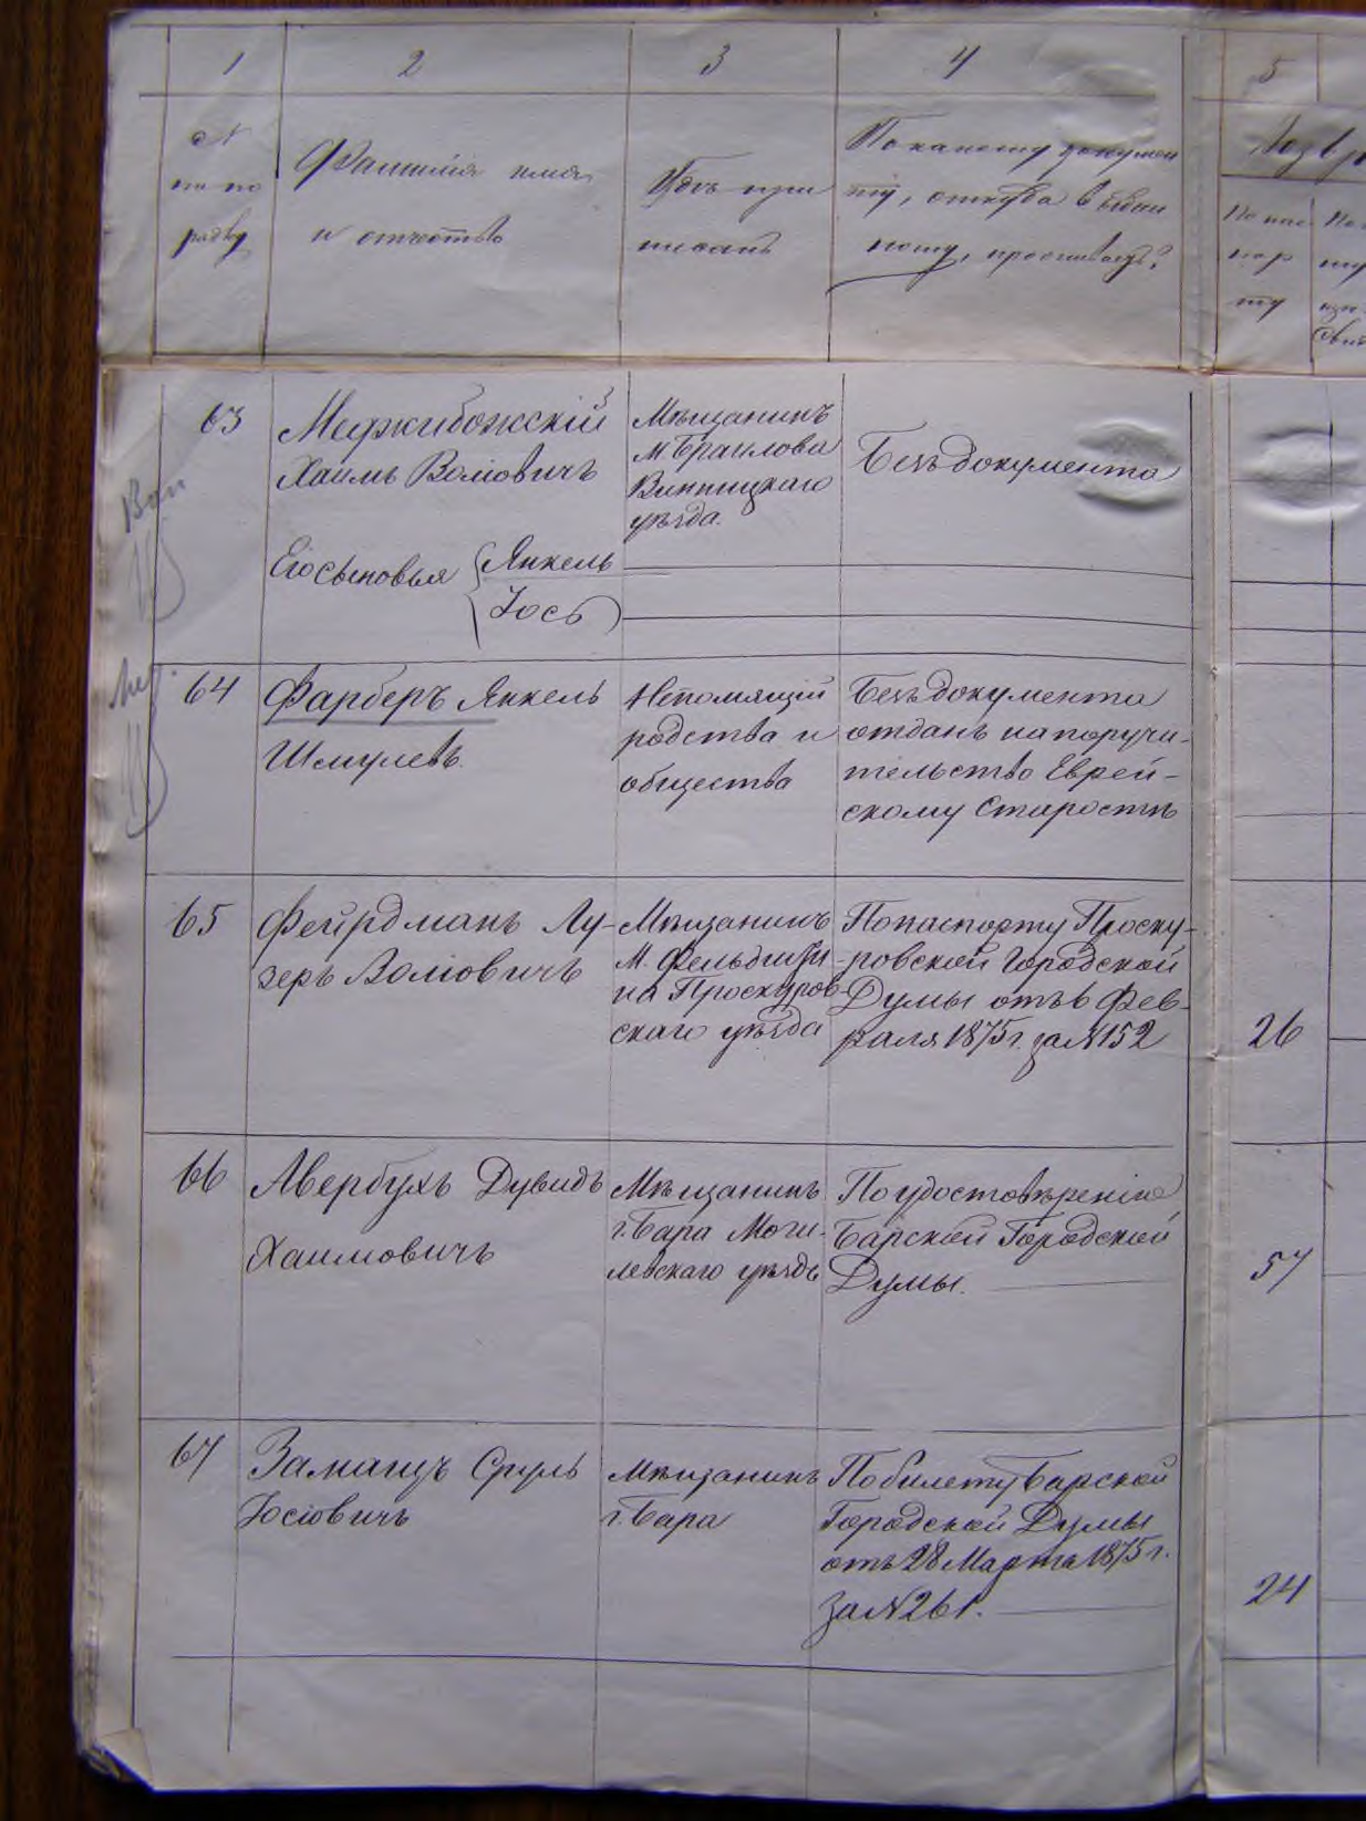 1 2 3 4 5
№
по по
рядку
Фамилія имя
и отчество
Гдѣ при
писанъ
По какому докумен
ту, откуда выдан
ному, проживаетъ?
По пас
пор
ту
63
Меджибожскій
Хаимъ Воліовичъ
Мѣщанинъ
м. Браилова
Винницкаго
уѣзда.
Безъ документа
Его сыновья { Янкель
Іось
64
Фарберъ Янкель
Шмулевъ.
Непомящій
родства и
общества
Безъ документа
отданъ на поручи-
тельство Еврей-
скому Старостѣ
65
Фейрдманъ Лу-
зеръ Воліовичъ
Мѣщанинъ
м. Фельдшти-
на Проскуров-
скаго уѣзда
По паспорту Проску-
ровской Городской
Думы отъ 6 Фев-
раля 1875 г. за №152
26
66
Авербухъ Дувидъ
Хаимовичъ
Мѣщанинъ
г. Бара Моги-
левскаго уѣзда
По удостовѣренію
Барской Городской
Думы.
57
67
Заманцъ Сруль
Іосіовичъ
Мѣщанинъ
г. Бара
По билету Барской
Городской Думы
отъ 28 Марта 1875 г.
за №261.
24